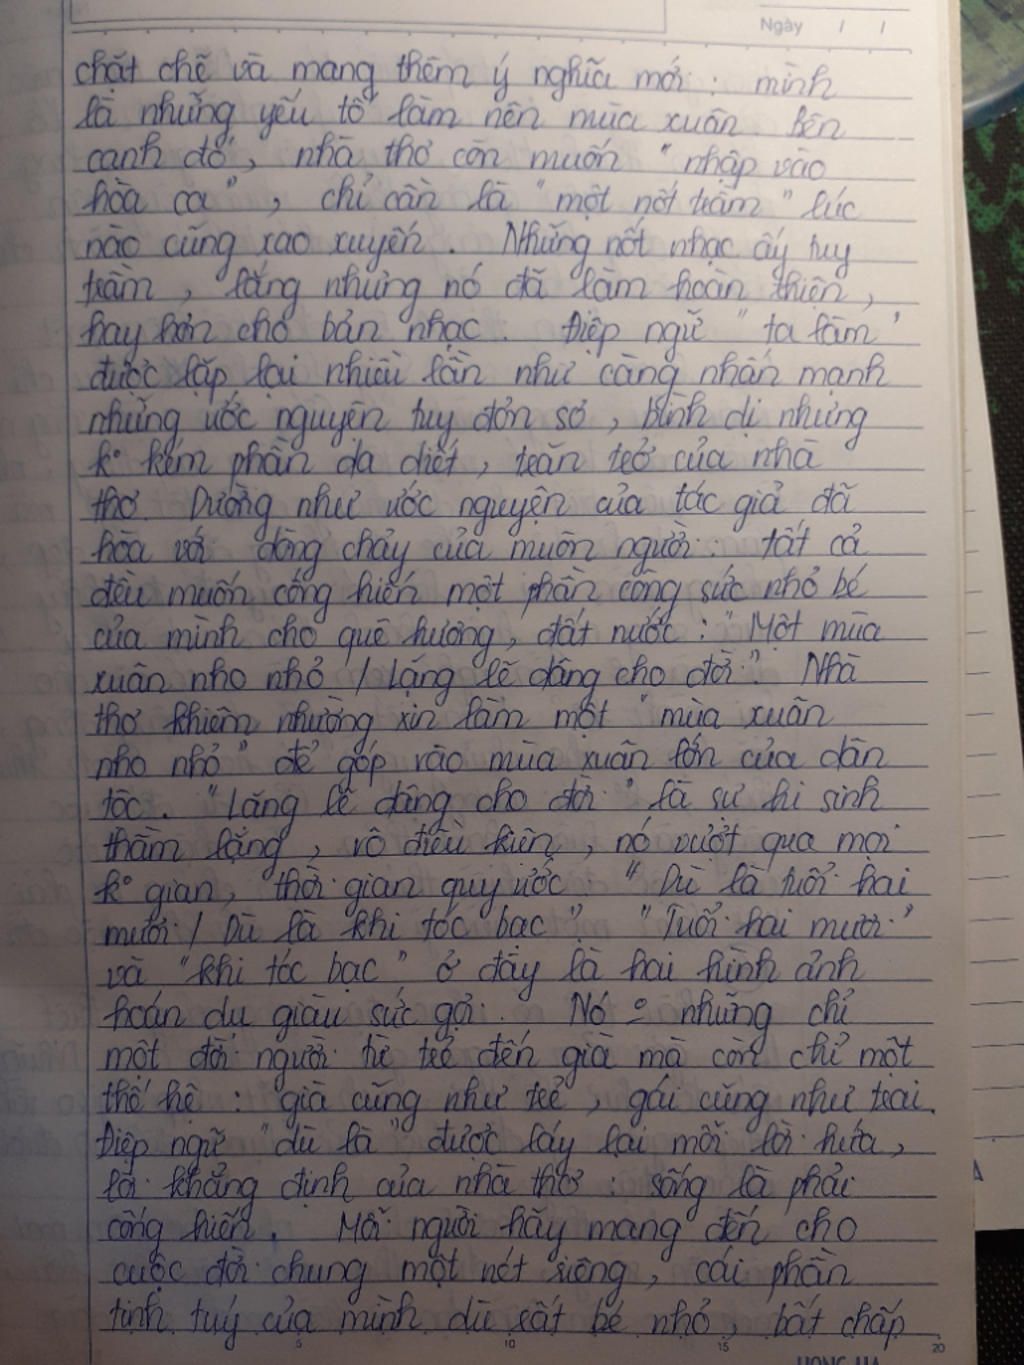 Ngày / /
chặt chẽ và mang thêm ý nghĩa mới : mình
là những yếu tố làm nên mùa xuân. Bên
cạnh đó, nhà thơ còn muốn "nhập vào
hòa ca", chỉ cần là "một nốt trầm" lúc
nào cũng xao xuyến. Những nốt nhạc ấy tuy
trầm, lắng nhưng nó đã làm hoàn thiện,
hay hơn cho bản nhạc. Điệp ngữ "ta làm"
được lặp lại nhiều lần như càng nhấn mạnh
những ước nguyện tuy đơn sơ, bình dị nhưng
k° kém phần da diết, trăn trở của nhà
thơ. Dường như ước nguyện của tác giả đã
hòa với dòng chảy của muôn người: tất cả
đều muốn cống hiến một phần công sức nhỏ bé
của mình cho quê hương, đất nước: "Một mùa
xuân nho nhỏ / Lặng lẽ dâng cho đời". Nhà
thơ khiêm nhường xin làm một "mùa xuân
nho nhỏ" để góp vào mùa xuân lớn của dân
tộc. "Lặng lẽ dâng cho đời" là sự hi sinh
thầm lặng, vô điều kiện, nó vượt qua mọi
k° gian, thời gian quy ước "Dù là tuổi hai
mươi / Dù là khi tóc bạc". "Tuổi hai mươi"
và "khi tóc bạc" ở đây là hai hình ảnh
hoán dụ giàu sức gợi. Nó o những chỉ
một đời người từ trẻ đến già mà còn chỉ một
thế hệ : già cũng như trẻ, gái cũng như trai.
Điệp ngữ "dù là" được láy lại mỗi lời hứa,
lời khẳng định của nhà thơ : sống là phải
cống hiến. Mỗi người hãy mang đến cho
cuộc đời chung một nét riêng, cái phần
tinh túy của mình dù rất bé nhỏ, bất chấp
5 10 15 20
HONG HA